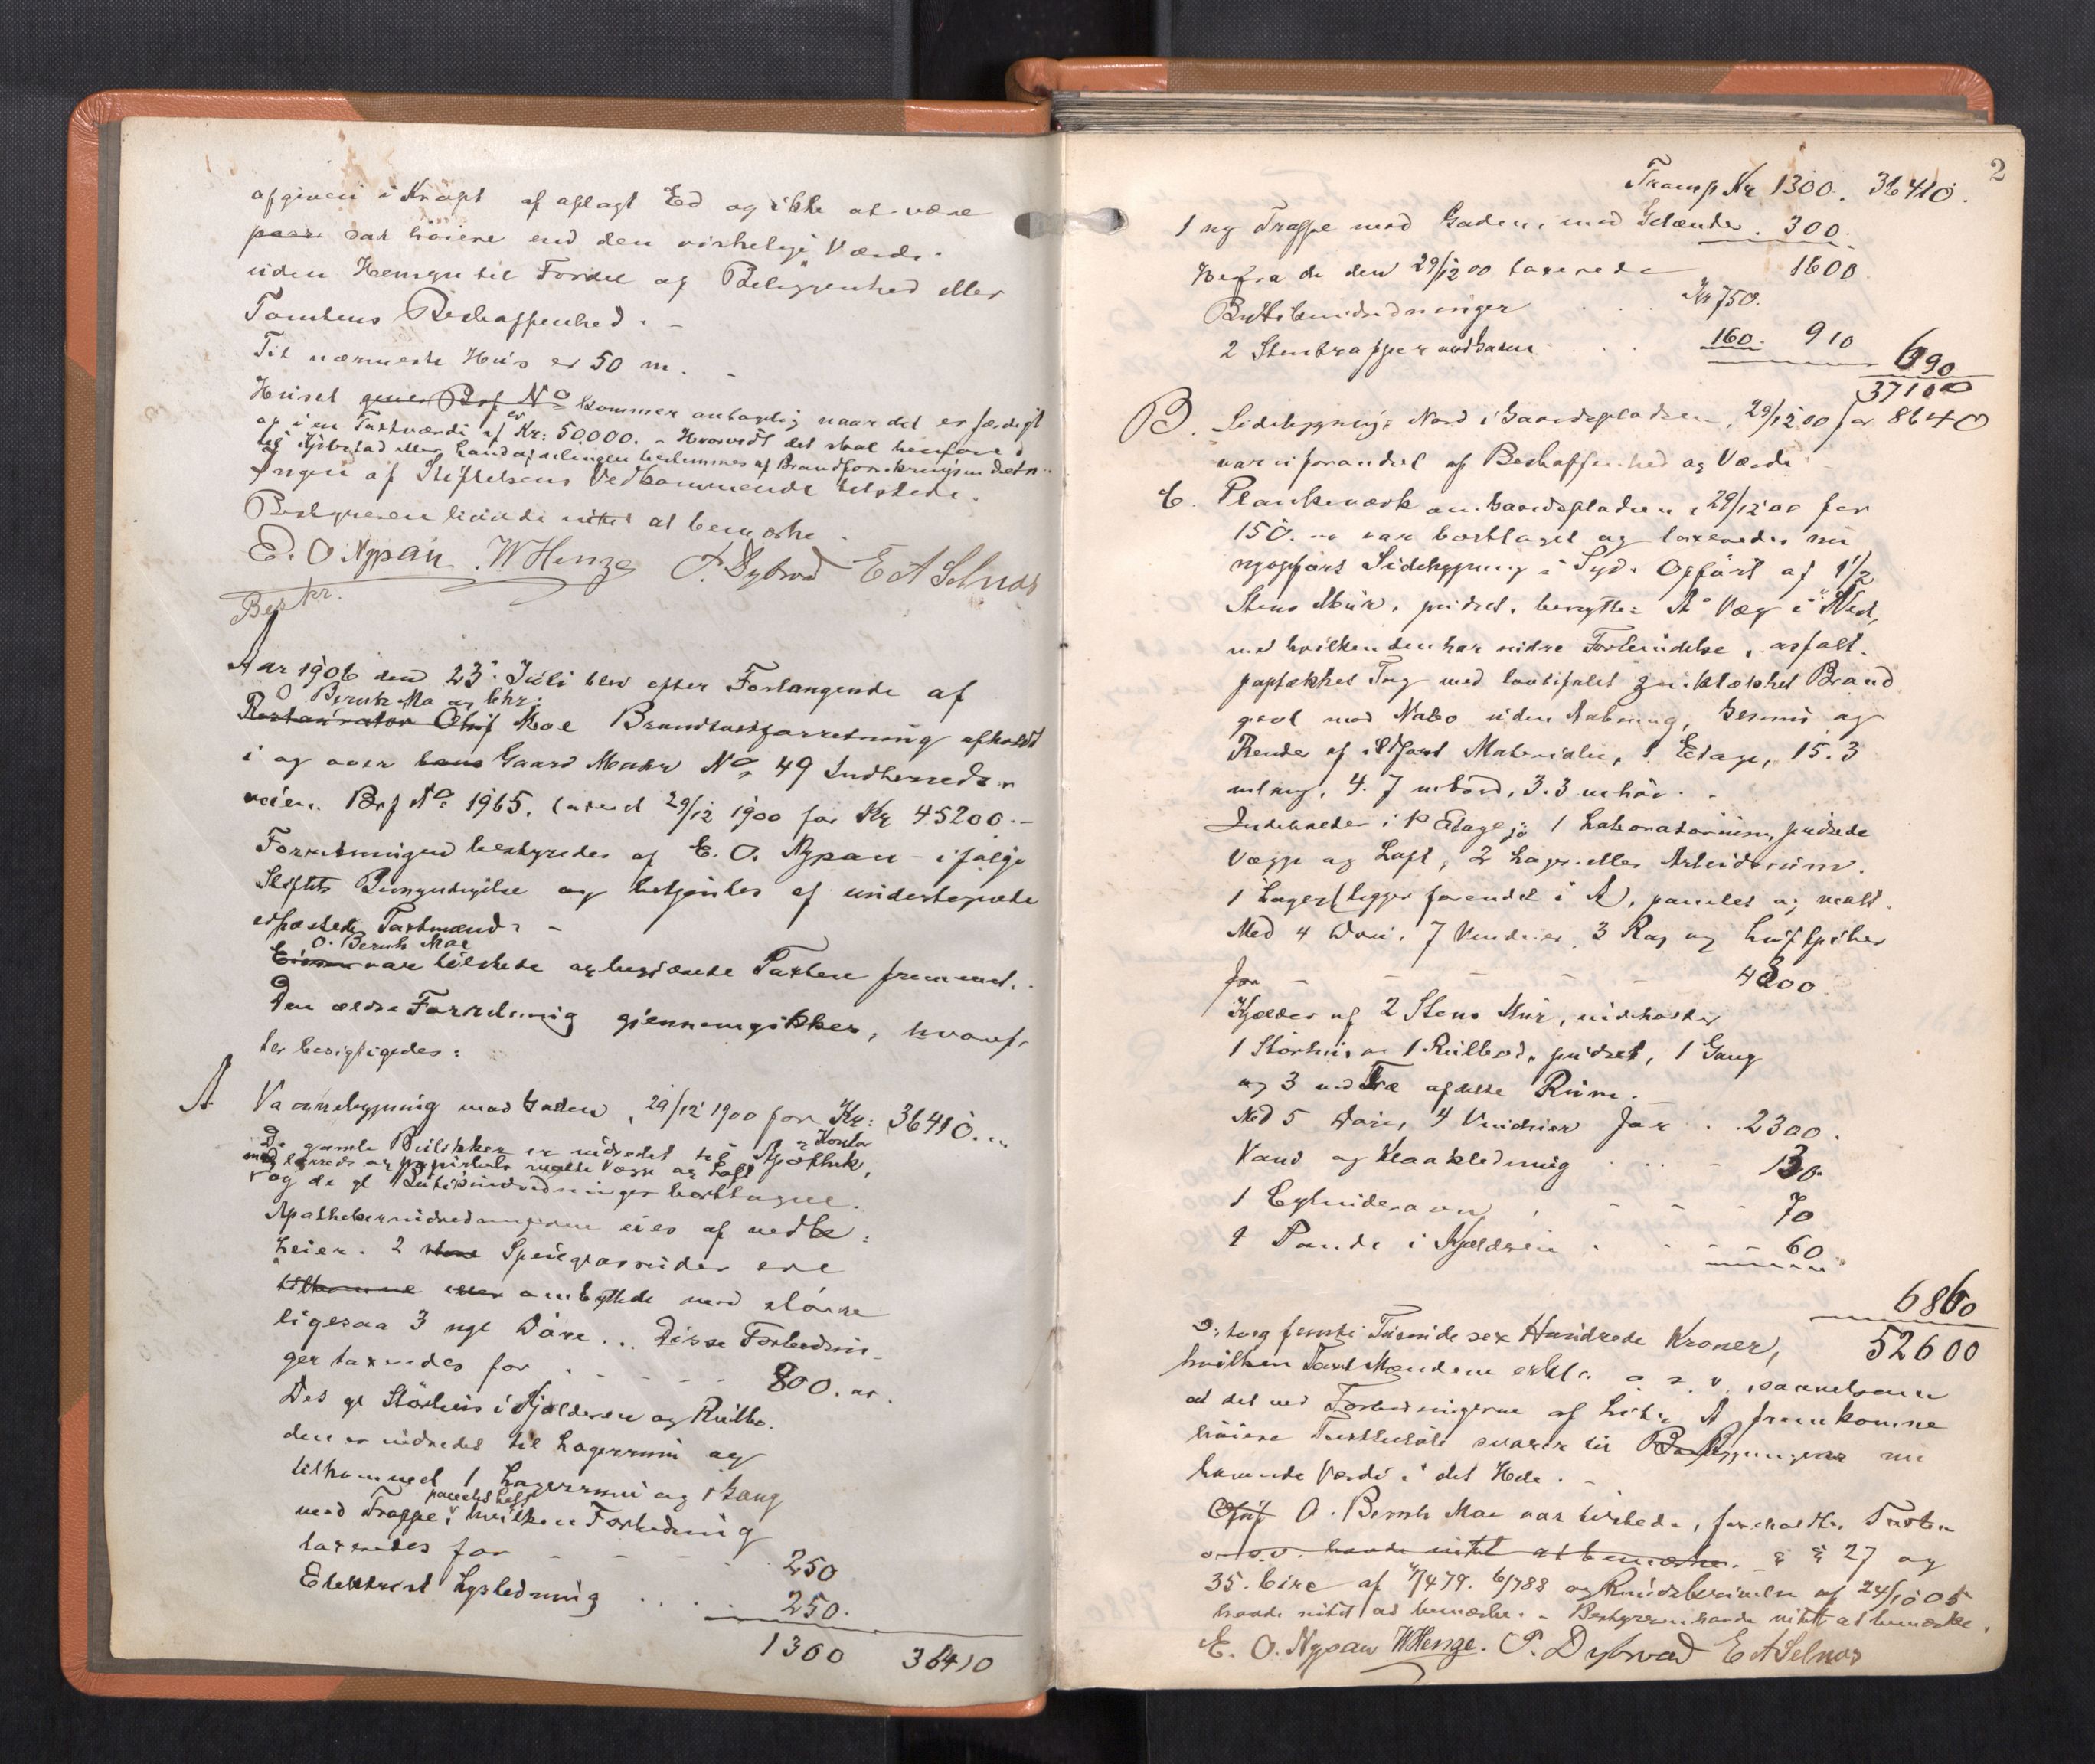 afgiven i Kraft af aflagt Ed og ikke at være
sat høiere end den virkelige Værdi
uden Hensyn til Fordel af Beliggenhed eller
Tomtens Beskaffenhed. -
Til nærmeste Hus er 50 m. -
Huset Brf No kommer antagelig naar det er færdigt
op i en Taxtværdi af Kr: 50.000. - Hvorvidt det skal henføres
til Kjøbstad eller Landafdelingen bestemmes af Brandforsikringsindretn.
Ingen af Stiftelsens Vedkommende tilstede.
Bestyreren havde intet at bemærke.
E. O Nypan. W Henze P. Dybvad E A Selnæs
Best.
Aar 1906 den 23' Juli blev efter Forlangende af
O Bernh. Moe
Restauratør Oluf Moe Brandtaxtforretning afholdt
i og over hans Gaard Matr No 49 Indherreds-
veien. Brf No 1965, taxeret 29/12 1900 for Kr 45200.-
Forretningen bestyredes af E. O. Nypan - ifølge
Stiftets Bemyndigelse og betjentes af undertegnede
edfæstede Taxtmænd. -
O. Bernh Moe
Eieren var tilstede og begjærede Taxten fremmet.
Den ældre Forretning gjennemgikkes, hvoref-
ter besigtigedes:
A Vaanebygning mod Gaden, 29/12 1900 for Kr: 36410.
De gamle Butikker er indredet til Apothek,
og Kontor
med malte Vægge og Loft
og de gl Butikindredninger borttagne.
Apothekerindredningerne eies af
Leier. 2 store Speilglasruder ere
tilkomne ombyttede med større
ligesaa 3 nye Døre... Disse Forbedrin-
ger taxeredes for - - - - 800.
Det gl Størhus i Kjælderen og Rullbo-
den er indredet til Lagerrum og
tilkommet 1 Lagerrum og 1 Gang
panelet Loft
med Trappe, hvilken Forbedring
taxeredes for - - - - 250
Elektrisk Lysledning . . . . 250.
1300 36410
2
Transp Kr 1300. 36410.
1 ny Trappe mod Gaden, med Gelænder. 300.
1600.
Herfra de den 29/12 00 taxerede
Butikindredninger . . Kr 750.
2 Stentrapper . . 160. 910
690
37100
B. Sidebygning i Nord i Gaardspladsen, 29/12 00 for 8640
var uforandret af Beskaffenhed og Værdi
C. Plankeværk om Gaardspladsen, 29/12 00 for
150.- var borttaget og taxeredes nu
nyopført Sidebygning i Syd. Opført af 1½
Stens Mur, pudset, benytter A' Væg i Vest,
med hvilken den har indre Forbindelse, asfalt-
paptækket Tag med zinktækket Brand
gavl mod Nabo uden Aabning, Gesims og
Render af ildfast Materiale, 1 Etage, 15.3
m lang, 4.7 m bred, 3.3 m høi. -
Indeholder i 1ste Etage: 1 Laboratorium, pudsede
Vægge og Loft, 2 Lager eller Arbeidsrum.
1 Lager (ligger forendet i A), panelet og malt.
Med 4 Døre, 7 Vinduer, 3 Rør og Luftpiber
for - - - - 4300.
Kjælder af 2 Stens Mur, indeholder
1 Størhus og 1 Rullbod, pudset, 1 Gang
og 3 med Træ afdelte Rum.
Med 5 Døre, 4 Vinduer for . . 2300.
Vand og Kloakledning . . . - 130.
1 Cylinderovn, . - - - 70
1 Pande i Kjælderen . . - - - 60
6860
D: to og femti Tusinde sex Hundrede Kroner, 52600
hvilken Taxt Mændene erkl. o. s. v. samt
at det ved Forbedringerne af Litr A fremkomne
høiere Taxtbeløb svarer til Bygningens nu
havende Værdi i det Hele. -
Oluf O. Bernh Moe var tilstede, foreholdtes Taxten
o. s. v. havde intet at bemærke. - § § 27 og
35. Circ af 4/7 79. 6/7 88 og Rundskrivelse af 24/10 05
havde intet at bemærke. - Bestyreren havde intet at bemærke.
E. O. Nypan W Henze. P. Dybvad E A Selnæs